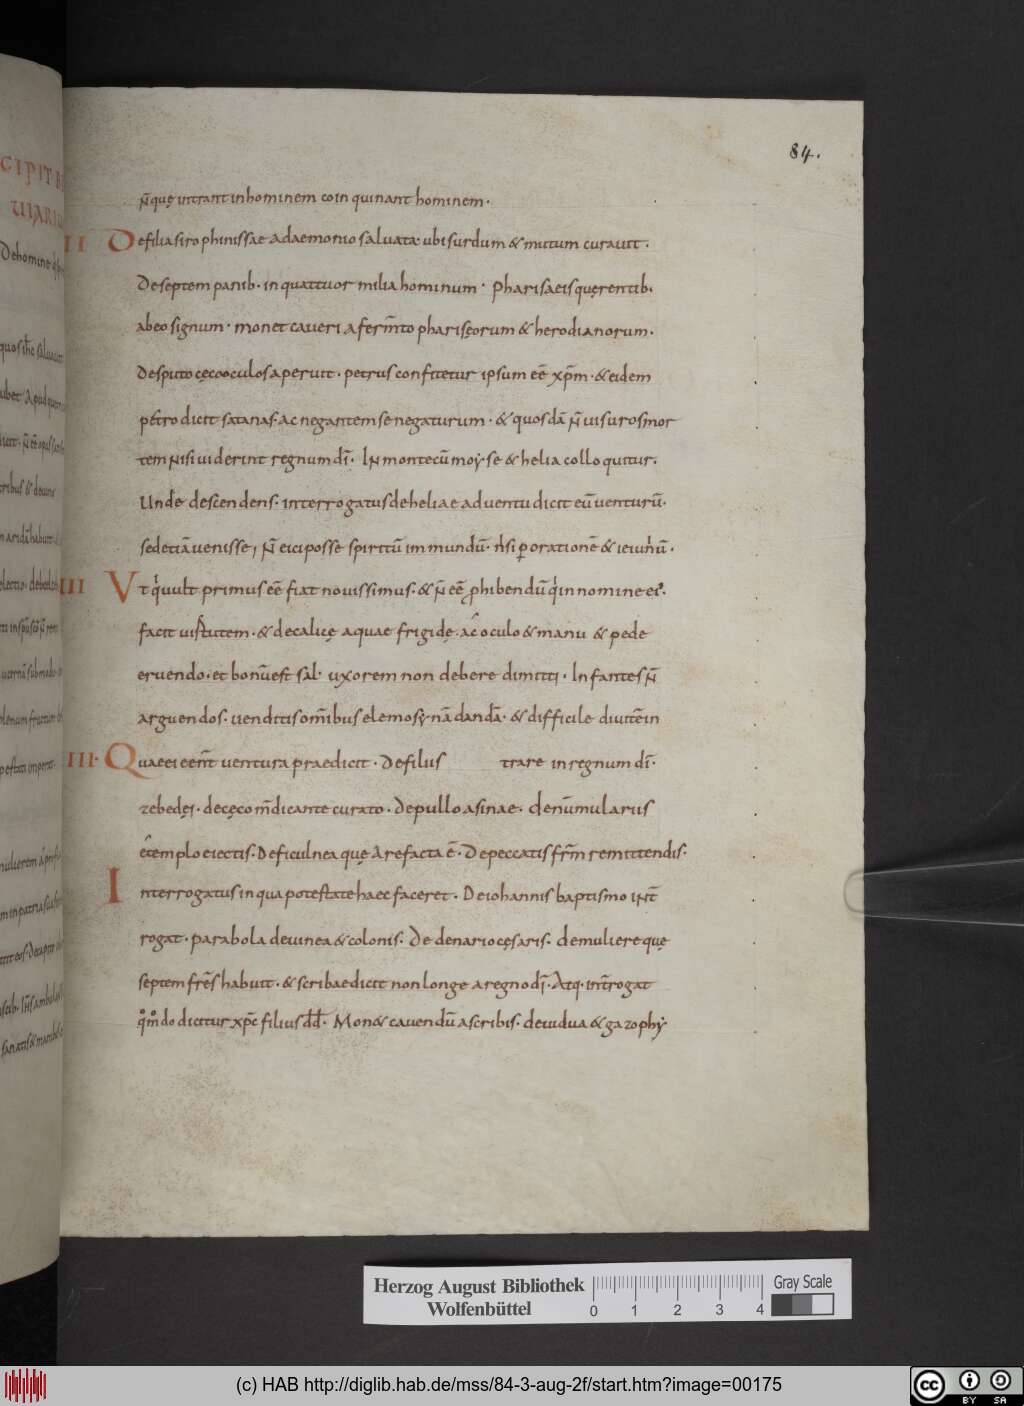 CIPIT B
UIARIU
Dehomine
quos ihc saluauit
84.
n̄ quę intrant inhominem coinquinant hominem.
II Defilia sirophinissae adaemonio saluata. ubi surdum & mutum curauit.
Deseptem panib. in quattuor milia hominum. pharisaeis quęrentib.
abeo signum. monet caueri aferm̄to phariseorum & herodianorum.
Desputo cęco oculos aperuit. petrus confitetur ipsum eē xp̄m. & eidem
petro dicit satanas. ac negantem se negaturum. & quosdā n̄ uisuros mor
tem nisi uiderint regnum dī. In monte cū moẏse & helia colloquitur.
Unde descendens. interrogatus deheliae aduentu dicit eū uenturū.
sed etiā uenisse, n̄ eici posse spiritū immundū. nisi p̱ orationē & ieiuniū.
III Ut qui uult primus eē fiat nouissimus. & n̄ eē prohibendū qui innomine ei'.
facit uirtutem. & decalicę aquae frigidę. ac oculo & manu & pede
eruendo. et bonū est sal. uxorem non debere dimitti. Infantes n̄
arguendos. uenditis om̄ibus elemosẏnā dandā. & difficile diuitē in
IIII. Quae ei eēnt uentura praedicit. Defiliis trare inregnum dī.
zebedęi. decęco m̄dicante curato. Depullo asinae. denūmulariis
etemplo eiectis. Deficulnea quę arefacta ē. Depeccatis fr̄m remittendis.
Interrogatus inqua potestate haec faceret. Deiohannis baptismo int̄
rogat. parabola deuinea & colonis. De denario cęsaris. demuliere quę
septem fr̄es habuit. & scribae dicit non longe aregno dī. Atq. int̄rogat
quomodo dicitur xp̄c filius dd̄. Mon& cauendū ascribis. deuidua & gazophẏ.
Herzog August Bibliothek
Wolfenbüttel
0 1 2 3 4
Gray Scale
(c) HAB http://diglib.hab.de/mss/84-3-aug-2f/start.htm?image=00175
cc BY SA